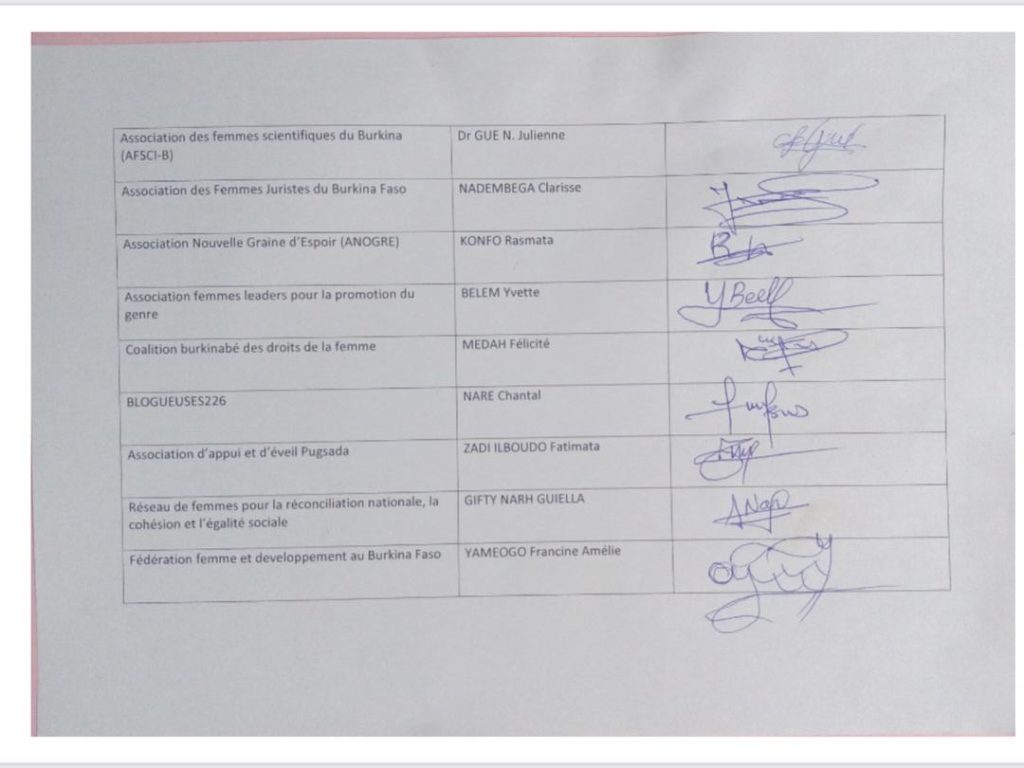 Association des femmes scientifiques du Burkina
(AFSCI-B)
Dr GUE N. Julienne
Association des Femmes Juristes du Burkina Faso
NADEMBEGA Clarisse
Association Nouvelle Graine d'Espoir (ANOGRE)
KONFO Rasmata
Association femmes leaders pour la promotion du
genre
BELEM Yvette
Y Beell
Coalition burkinabé des droits de la femme
MEDAH Félicité
BLOGUEUSES226
NARE Chantal
Association d'appui et d'éveil Pugsada
ZADI ILBOUDO Fatimata
Réseau de femmes pour la réconciliation nationale, la
cohésion et l'égalité sociale
GIFTY NARH GUIELLA
Fédération femme et developpement au Burkina Faso
YAMEOGO Francine Amélie